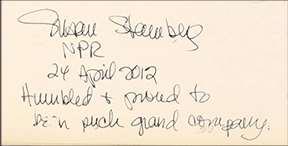 Susan Stamberg
NPR
24 April 2012
Humbled + proud to
be in such grand company.